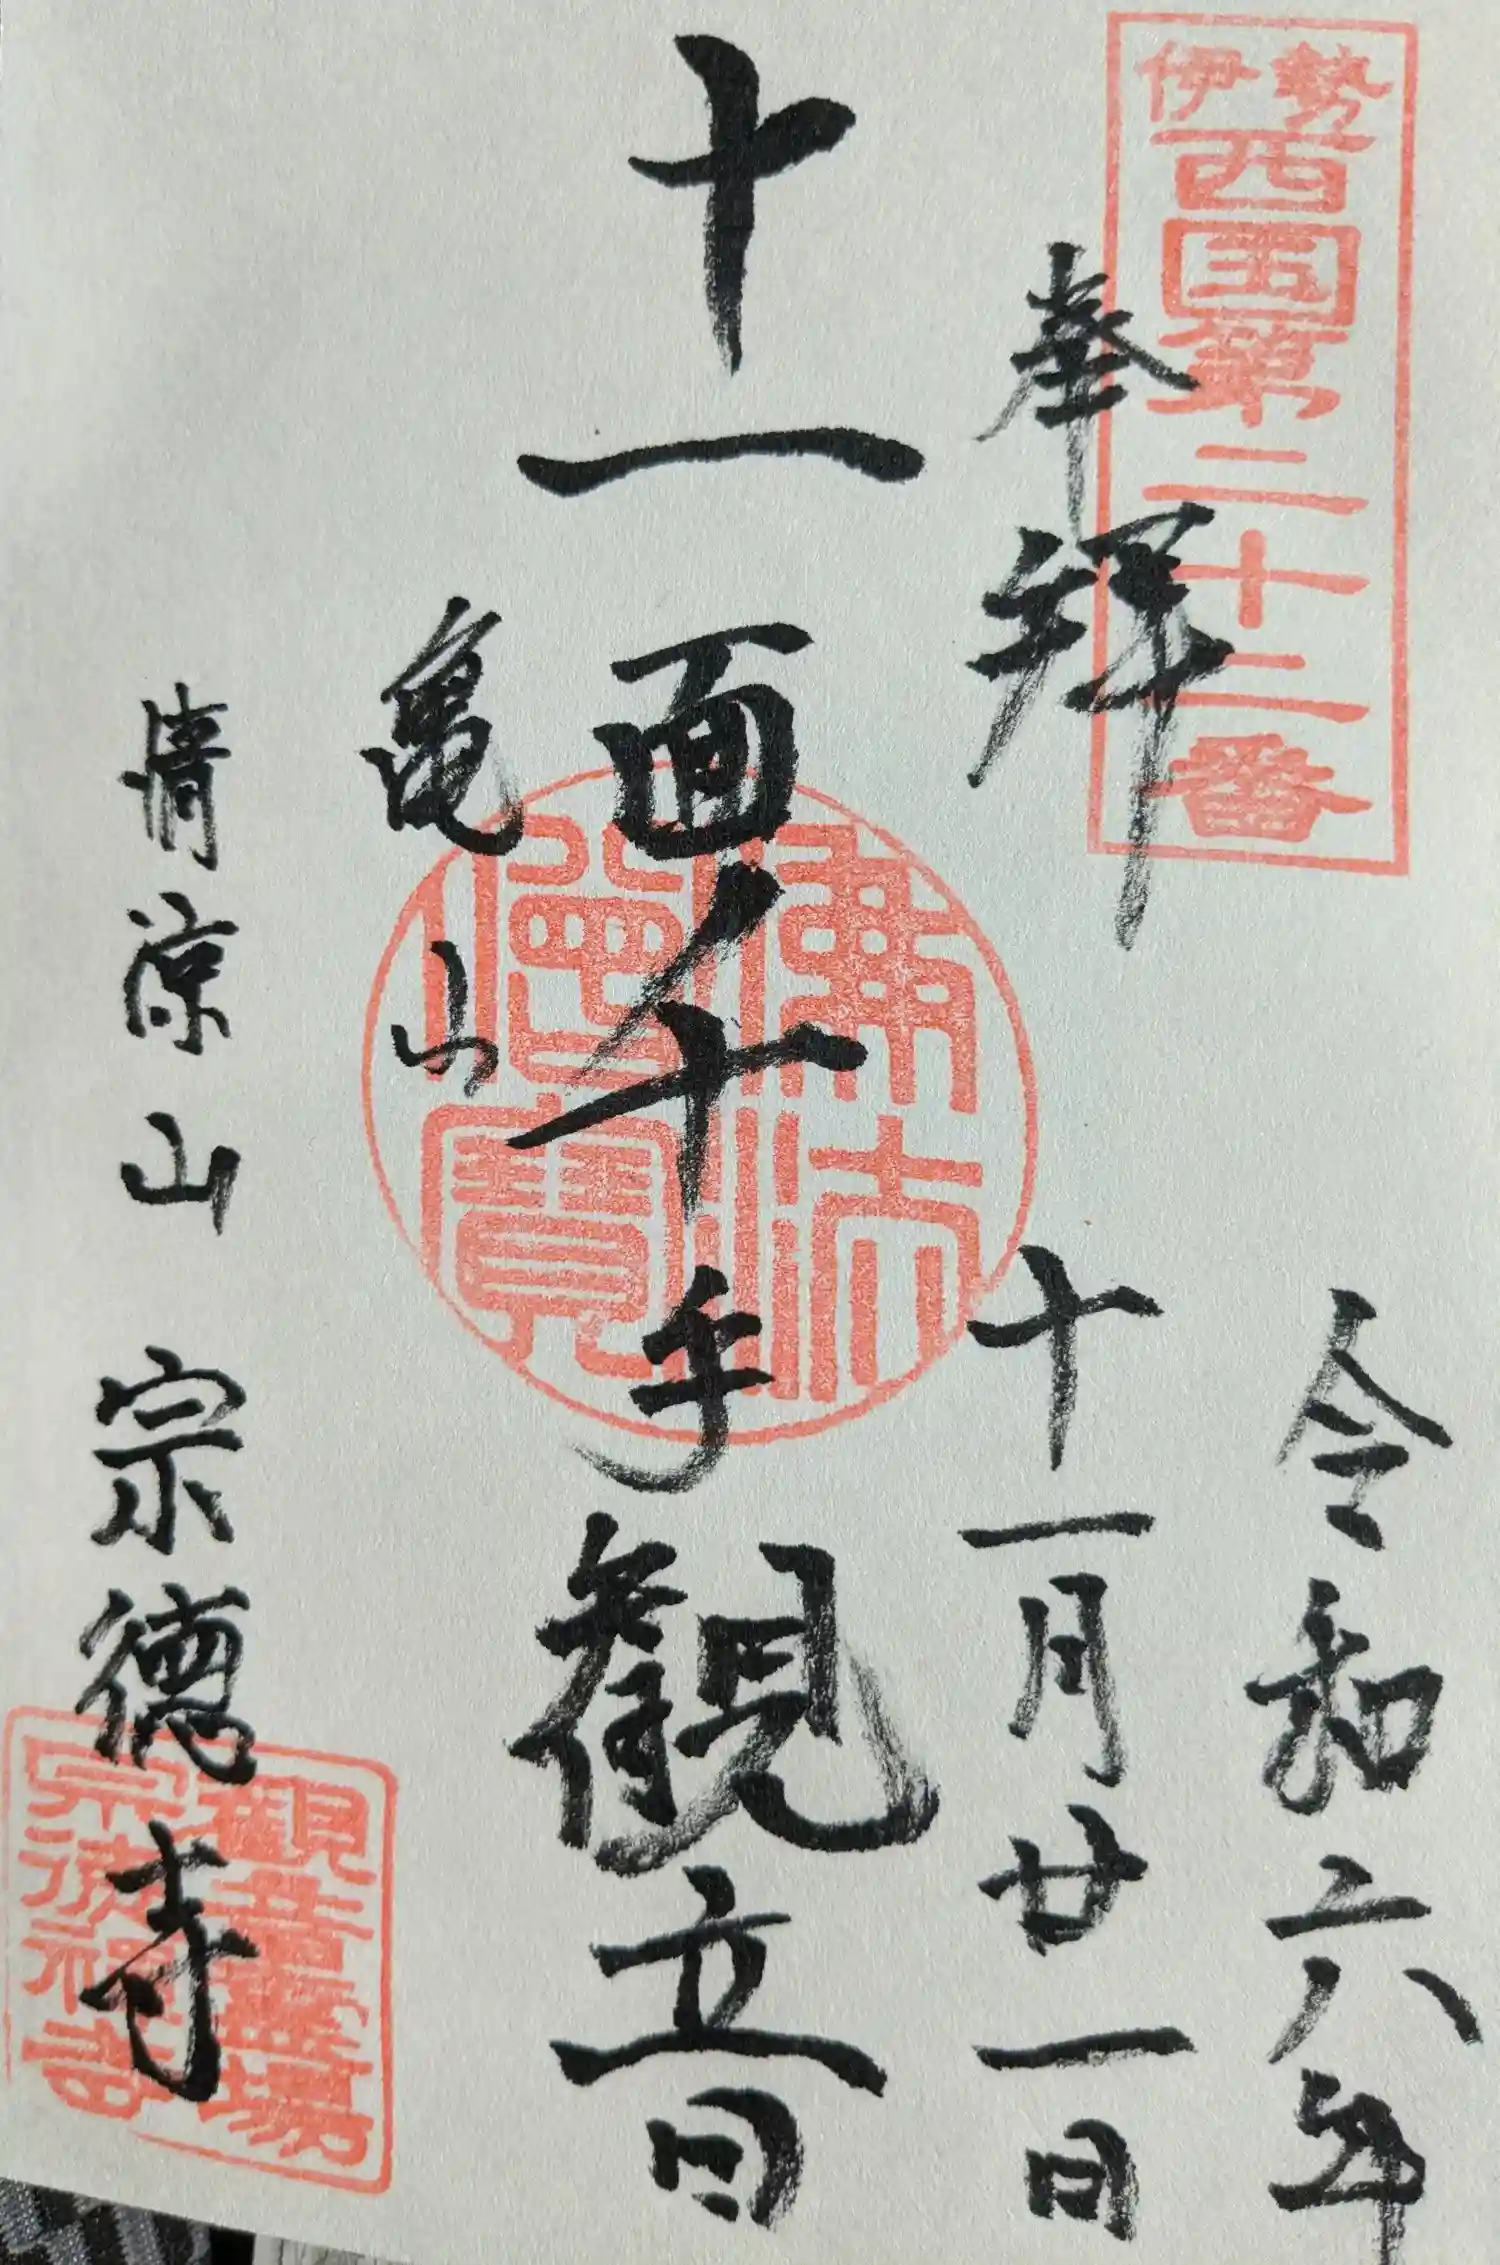 伊勢
西国第二十二番
奉拝
令和六年
十一月廿一日
十一面千手観音
佛法僧寶
亀山
清涼山 宗徳寺
観音霊場
宗徳禅寺